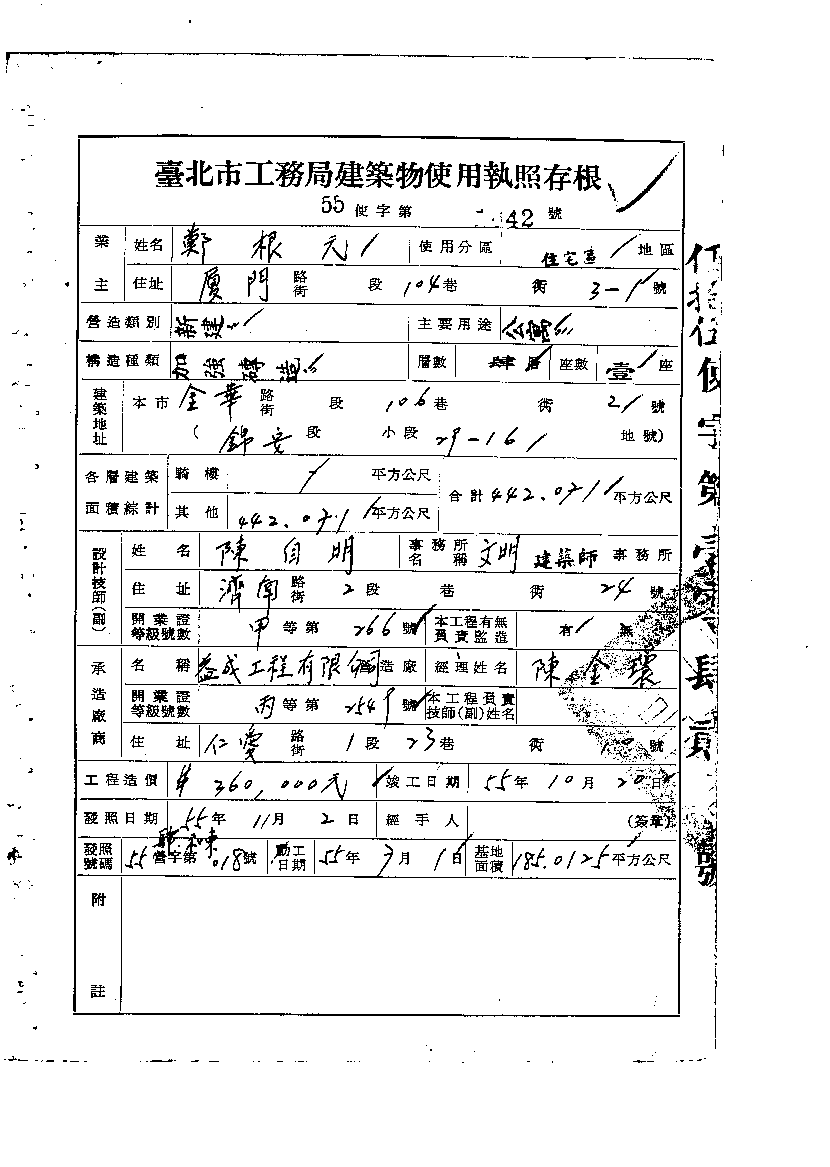 臺北市工務局建築物使用執照存根
55 使字第 42 號
業主 姓名 鄭根元 使用分區 住宅區 地區
住址 厦門 路街 段 104巷 街 3-1 號
營造類別 新建 主要用途 公寓
構造種類 加強磚造 層數 肆層 座數 壹座
建築地址 本市 金華 路街 段 106巷 街 21號
(錦安段 小段 29-161 地號)
各層建築面積綜計 騎樓 / 平方公尺 合計 442.071 平方公尺
其他 442.071 平方公尺
設計技師(副) 姓名 陳自明 事務所名稱 文明 建築師 事務所
住址 濟南 路街 2段 巷 街 24號
開業證等級號數 甲等第 266號 本工程有無負責監造 有 無
承造廠商 名稱 益成工程有限公司 造廠 經理姓名 陳金
開業證等級號數 丙等第 號 本工程負責技師(副)姓名
住址 仁愛 路街 1段 23巷 街 號
工程造價 360,000元 竣工日期 55年10月20日
發照日期 55年11月2日 經手人 (簽章)
發照號碼 55營字第 018號 動工日期 55年3月1日 基地面積 185.0125平方公尺
附註
伍拾伍使字第壹肆貳 號